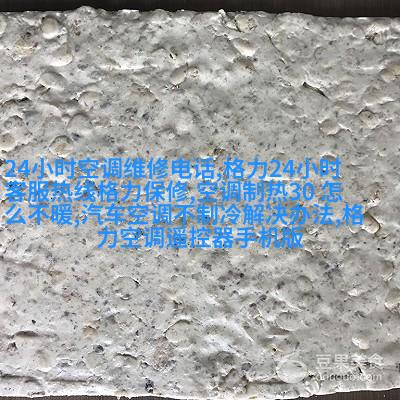 24小时空调维修电话,格力24小时
客服热线格力保修,空调制热30 怎
么不暖,汽车空调不制冷解决办法,格
力空调遥控器手机版
豆果美食
douguo.com